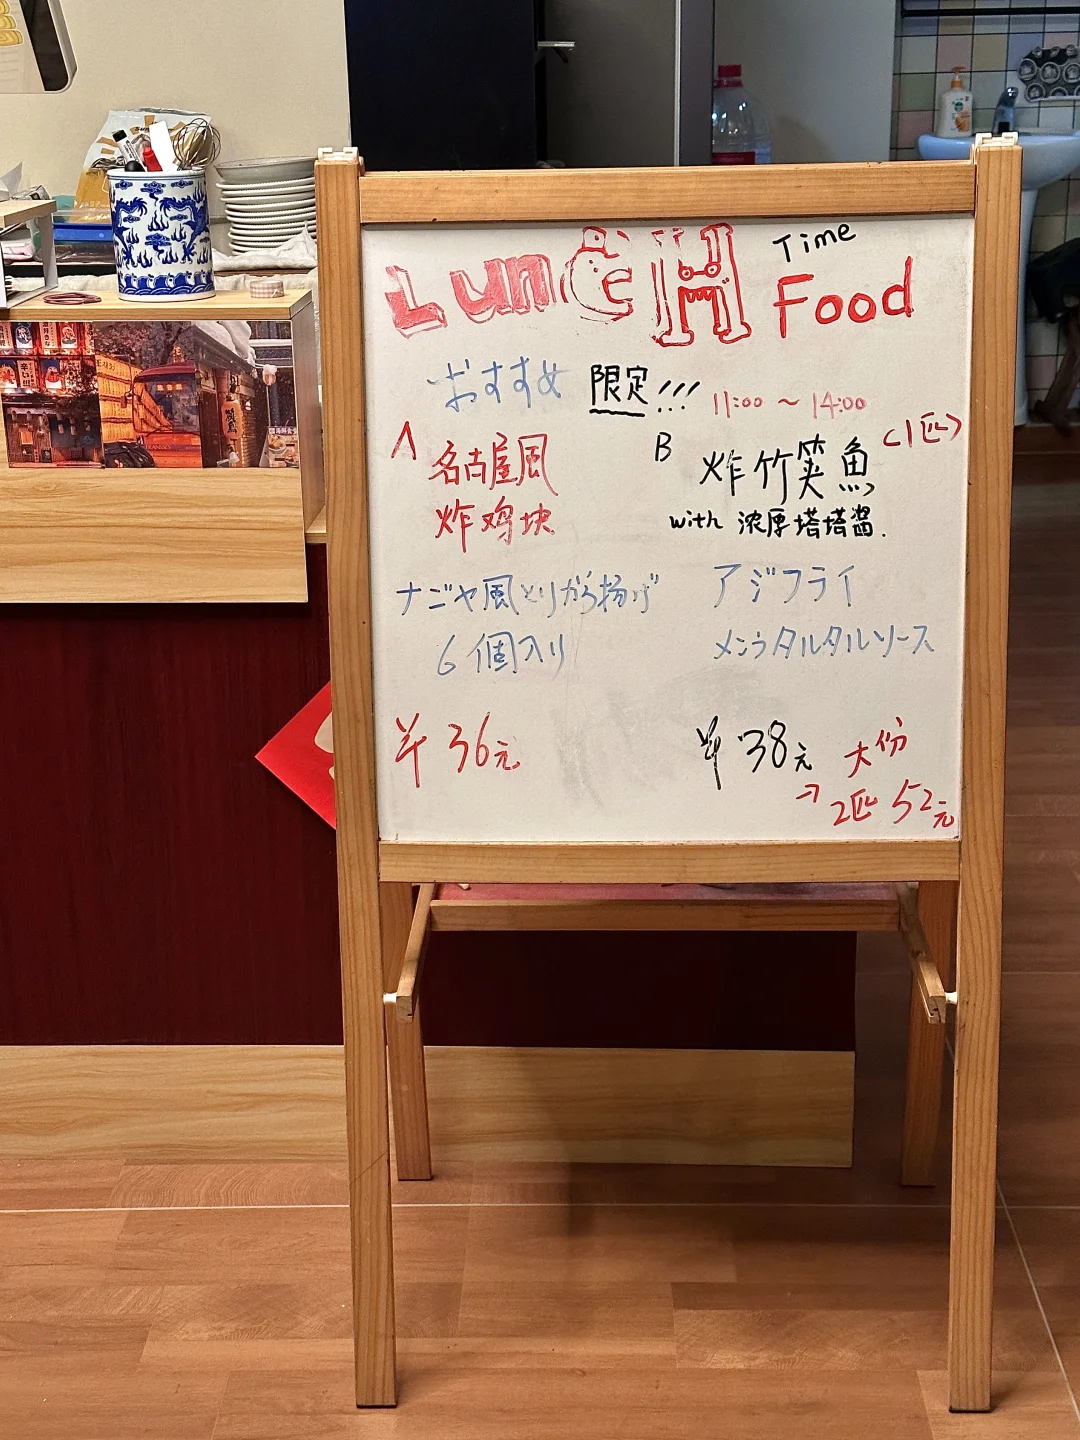 LuncH Time
Food
おすすめ 限定!!!
11:00 ~ 14:00
A 名古屋風
炸鸡块
ナゴヤ風とりから揚げ
6個入り
¥36元
B 炸竹筴魚 (1匹)
with 浓厚塔塔醬.
アジフライ
メンタルタルソース
¥38元 大份
→ 2匹 52元